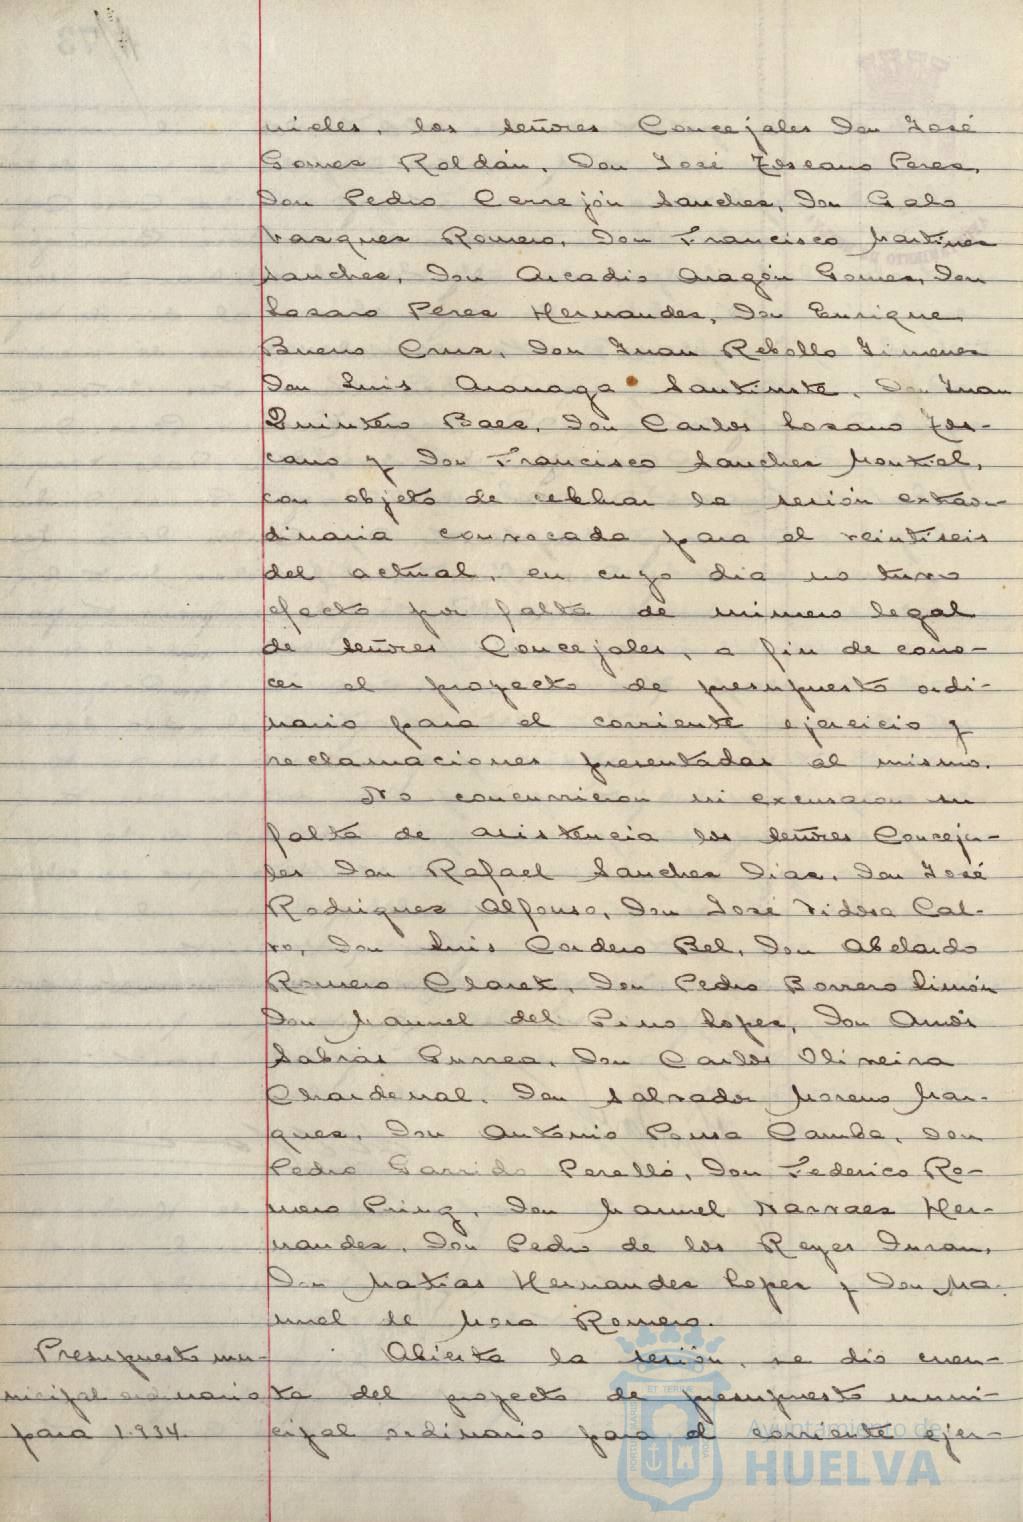 nieles, los señores Concejales Don José
Gomez Roldán, Don José Toscano Perez,
Don Pedro Cerrejón Sanchez, Don Galo
Vazquez Romero, Don Francisco Martinez
Sanchez, Don Arcadio Aragón Gomez, Don
Lazaro Perez Hernandez, Don Enrique
Bueno Cruz, Don Juan Rebollo Jimenez
Don Luis Aranaga Santiuste, Don Juan
Quintero Baez, Don Carlos Lozano Tos-
cano y Don Francisco Sanchez Montiel,
con objeto de celebrar la sesión extraor-
dinaria convocada para el veintiseis
del actual, en cuyo dia no tuvo
efecto por falta de número legal
de señores Concejales, a fin de cono-
cer el proyecto de presupuesto ordi-
nario para el corriente ejercicio y
reclamaciones presentadas al mismo.
No concurrieron ni excusaron su
falta de asistencia los señores Conceja-
les Don Rafael Sanchez Diaz, Don José
Rodriguez Alfonso, Don José Vidosa Cal-
vo, Don Luis Cordero Bel, Don Abelardo
Romero Claret, Don Pedro Borrero Limón
Don Manuel del Pino Lopez, Don Amós
Sabrás Gurrea, Don Carlos Oliveira
Chardenal, Don Salvador Moreno Mar-
quez, Don Antonio Pousa Camba, Don
Pedro Garrido Perelló, Don Federico Ro-
mero Pring, Don Manuel Narvaez Her-
nandez, Don Pedro de los Reyes Duran,
Don Matias Hernandez Lopez y Don Ma-
nuel de Mora Romero.
Presupuesto mu-
nicipal ordinario
para 1.934.
Abierta la sesión, se dió cuen-
ta del proyecto de presupuesto muni-
cipal ordinario para el corriente ejer-
Ayuntamiento de
HUELVA